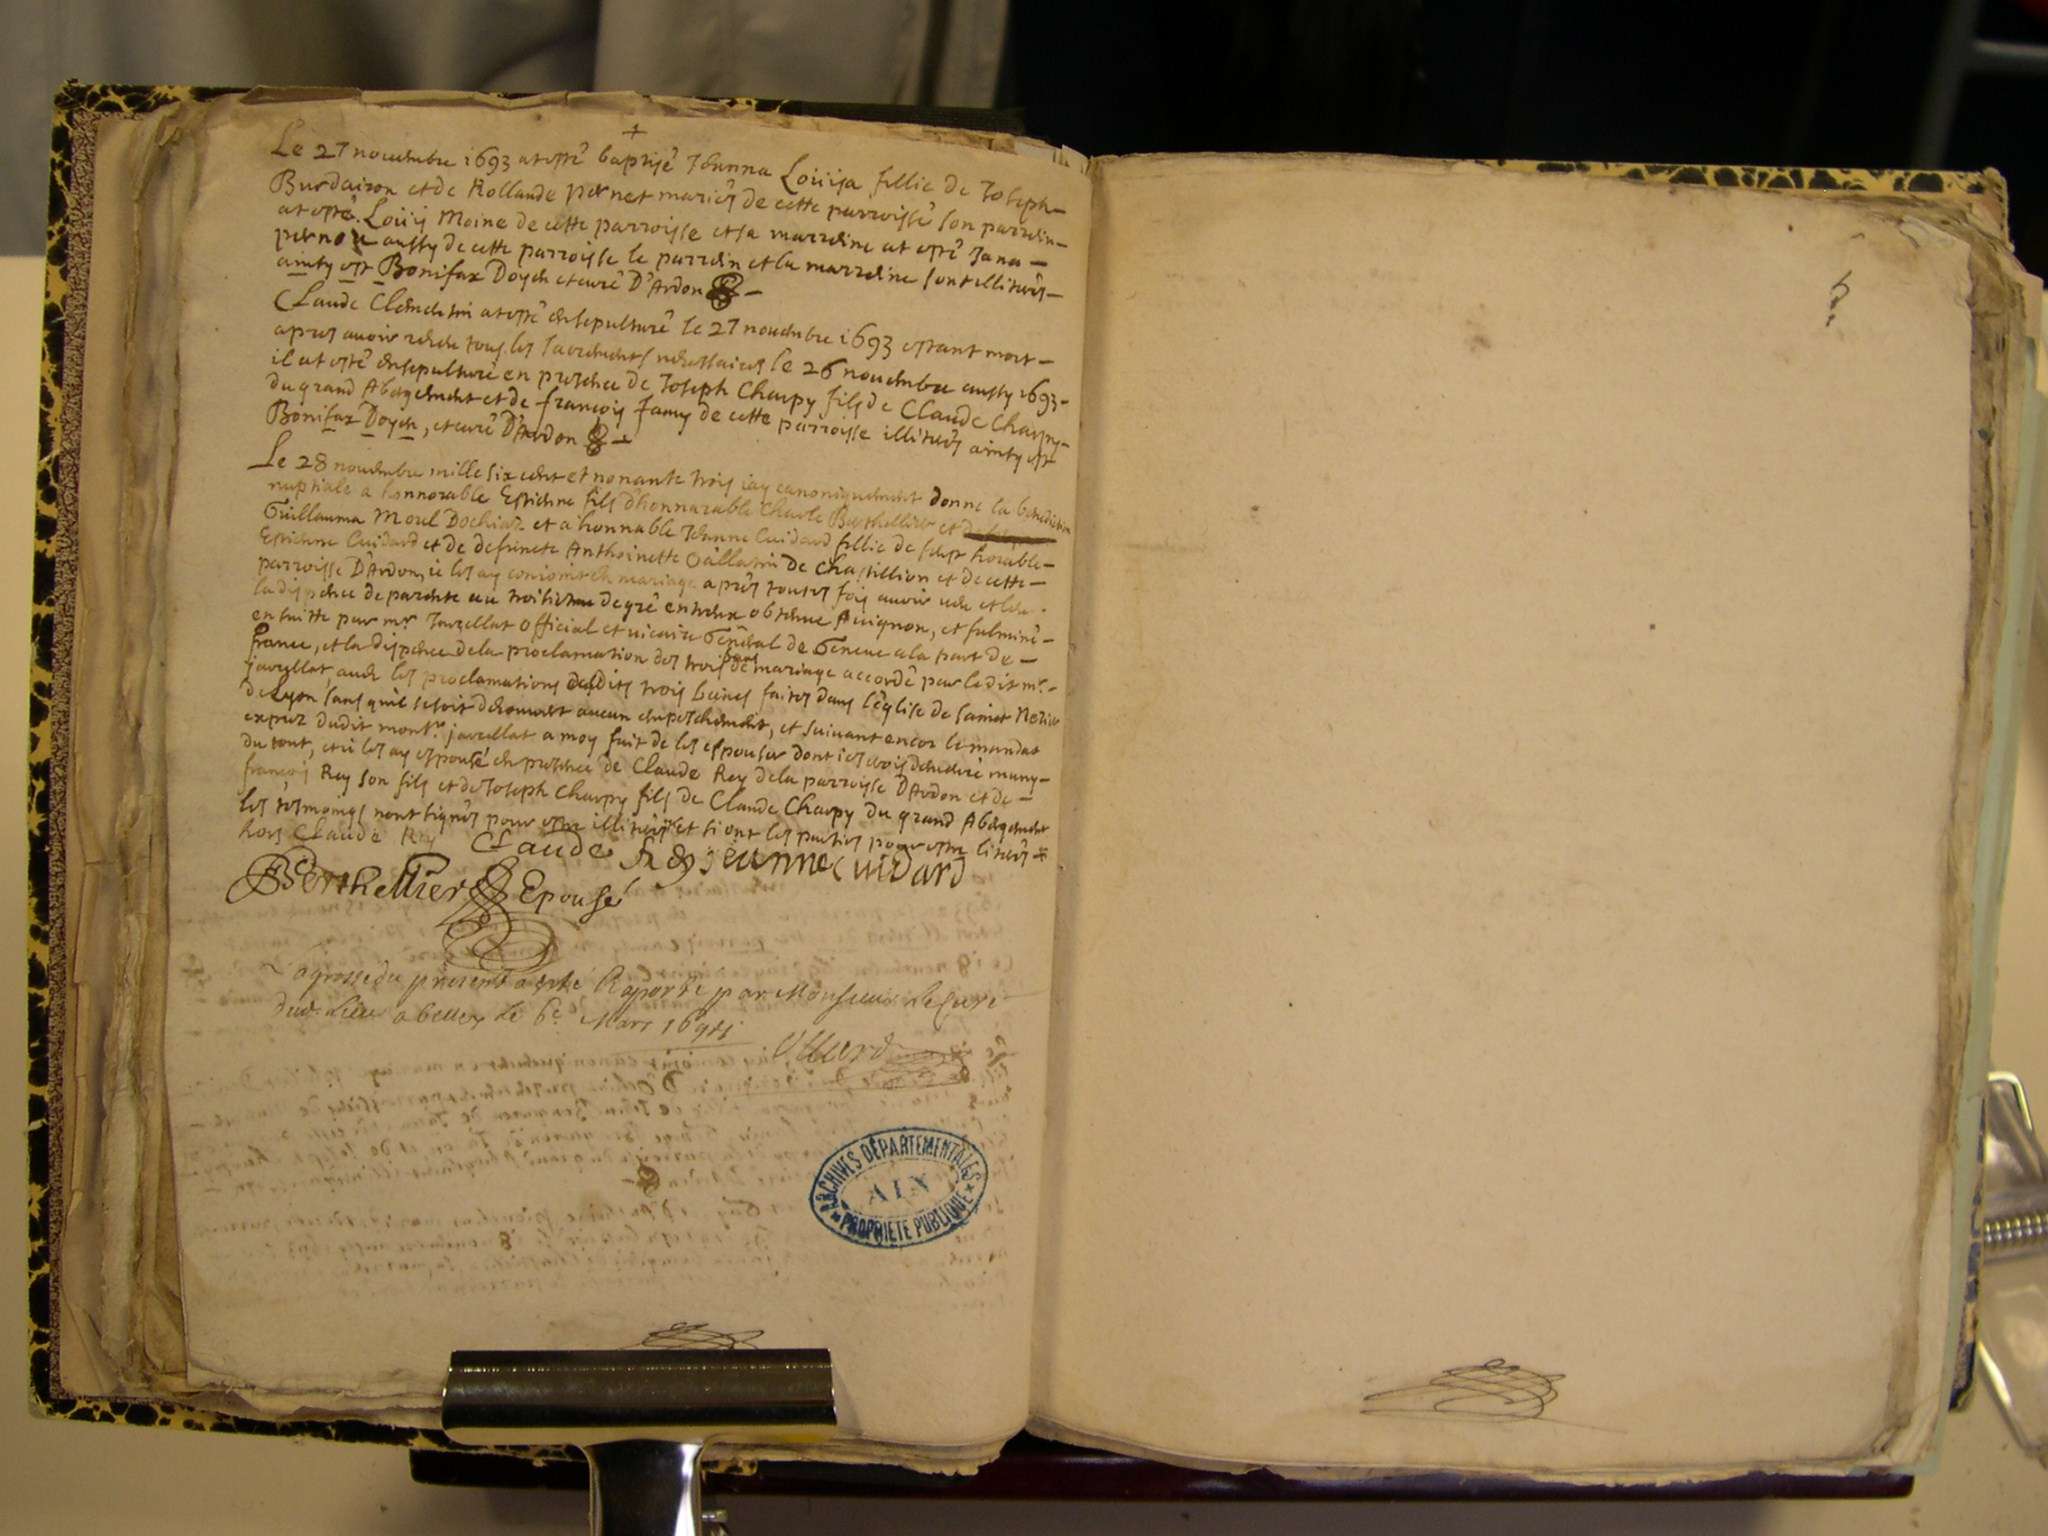 Le 27 novembre 1693 at esté baptisé Jeanna Loüisa fillie de Joseph
Burdairon et de Rollande pernet mariés de cette parroisse son parrein
at esté Loüis Moine de cette parroisse et sa marreine at esté Jana
pernou aussy de cette parroisse le parrein et la marreine sont illiterés
ainsy est Bonifax Doyen et curé D'Ardon
Claude at esté ensepulturé le 27 novembre 1693 estant mort
apres avoir receu tous les sacrements necessaires le 26 novembre aussy 1693
il at esté ensepulturé en presence de Joseph Charpy fils de Claude Charpy
du grand Abergement et de françois Jamy de cette parroisse illiterés ainsy est
Bonifax Doyen, et curé D'Ardon
Le 28 novembre mille six cent et nonante trois iay canoniquement donné la benediction
nuptiale a honnorable Estienne fils d'honnorable Charle Berthellier et
Guillauma Morel Dochiaz et a honnable Jeanne Cuidard fillie de feust horable
Estienne Cuidard et de defuncte Anthoinette de Chastillion et de cette
parroisse D'Ardon, ie les ay conioinct en mariage apres toutes fois avoir veu et leu
la dispence de parente au troisieme degré entreux obtenue Avignon, et fulminé
en suitte par mr Jarcellat official et vicaire Général de Geneve a la part de
france, et la dispence de la proclamation des trois bans mariage accordé par ledit mr
jarcellat, avec les proclamations desdits trois banes faites dans l'église de sainct Nezier
de Lyon sans qu'il se soit decouvert aucun empeschement, et suivant encor le mandat
expres dudit monsr jarcellat a moy fait de les espouser dont ie
du tout, et ie les ay espousé en presence de Claude Rey de la parroisse D'Ardon et de
françois Rey son fils et de Joseph Charpy fils de Claude Charpy du grand Abergement
les tesmoings nont signés pour estre illiterés et si ont les parties pour estre literés
hors Claude Rey Claude Rey jeanne Cuidard
Berthellier Epousé
La grosse du present a esté Raporté par Monsieur Le Curé
dud. Lieu a belley Le 6e Mars 1694
ARCHIVES DÉPARTEMENTALES
AIN
PROPRIÉTÉ PUBLIQUE